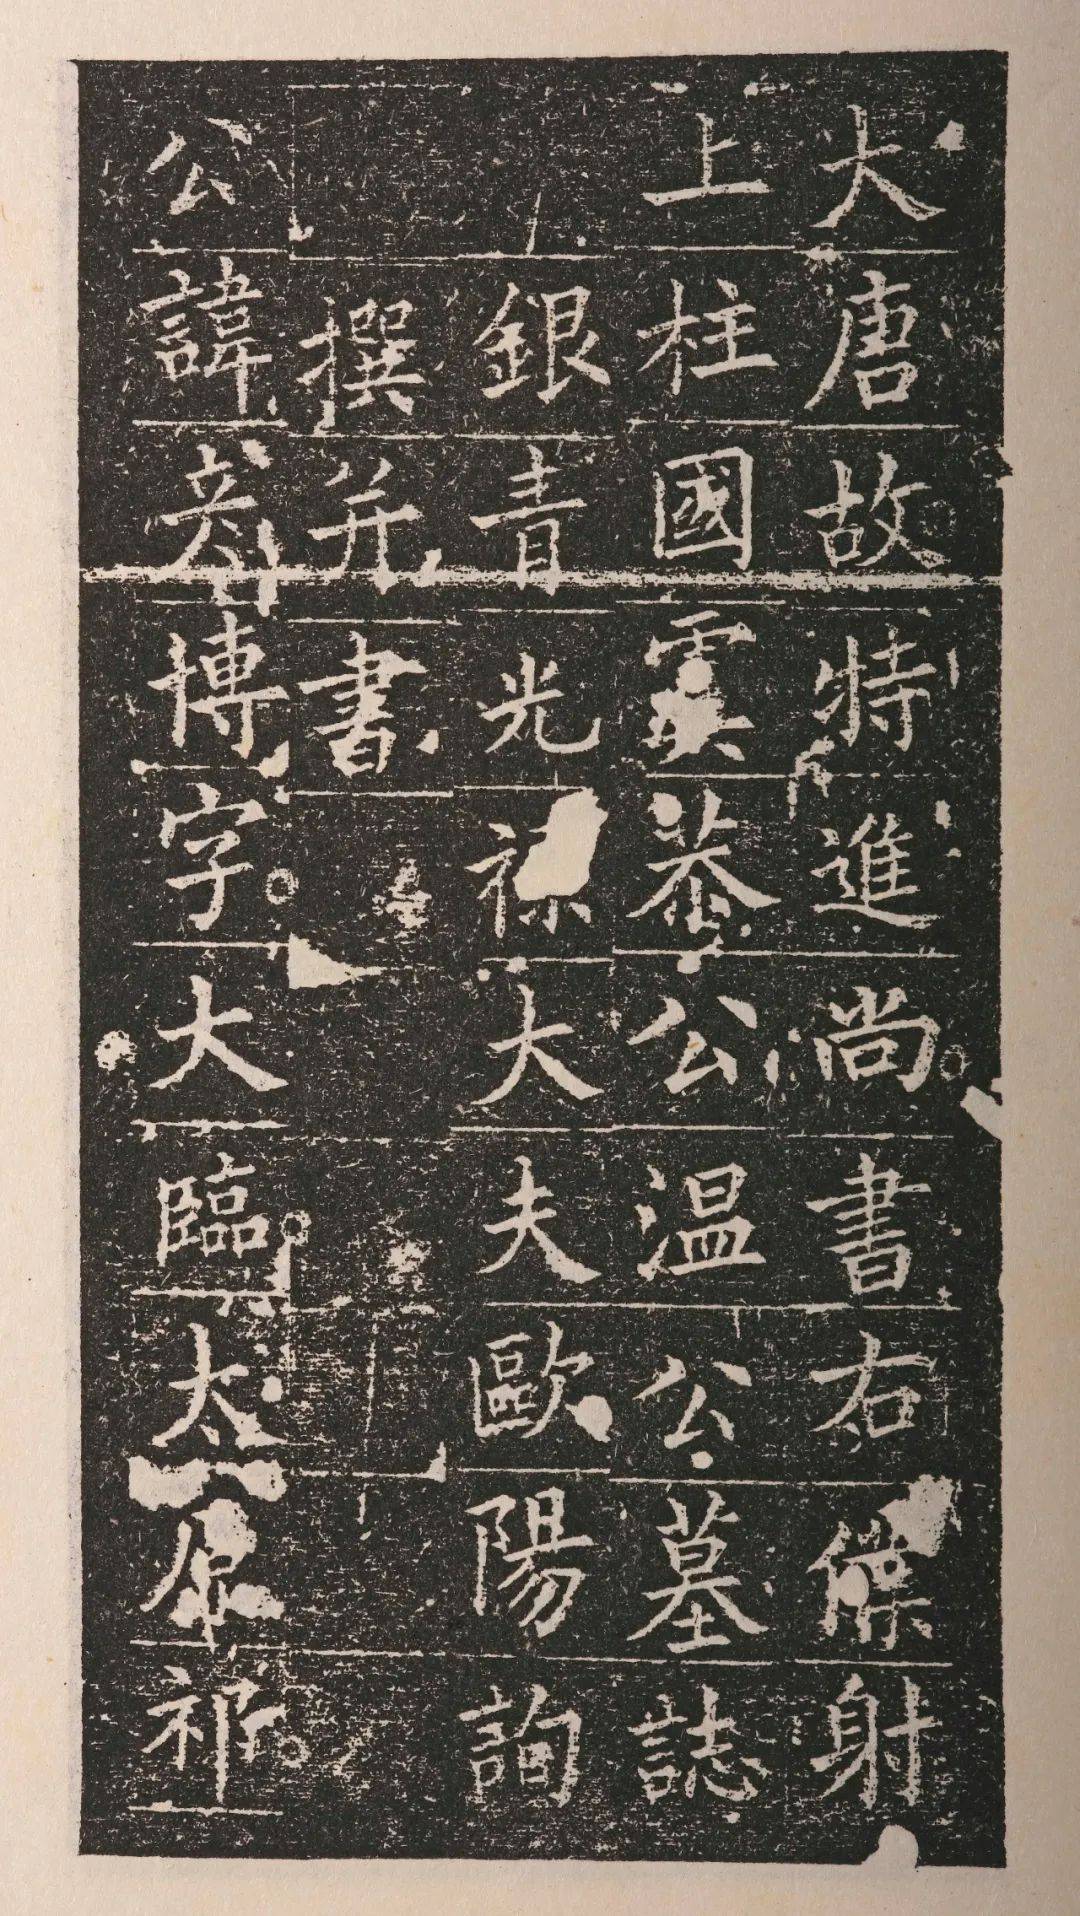 大唐故特進尚書右僕射
上柱國虞恭公温公墓誌
銀青光禄大夫歐陽詢
撰并書
公諱彦博字大臨太原祁